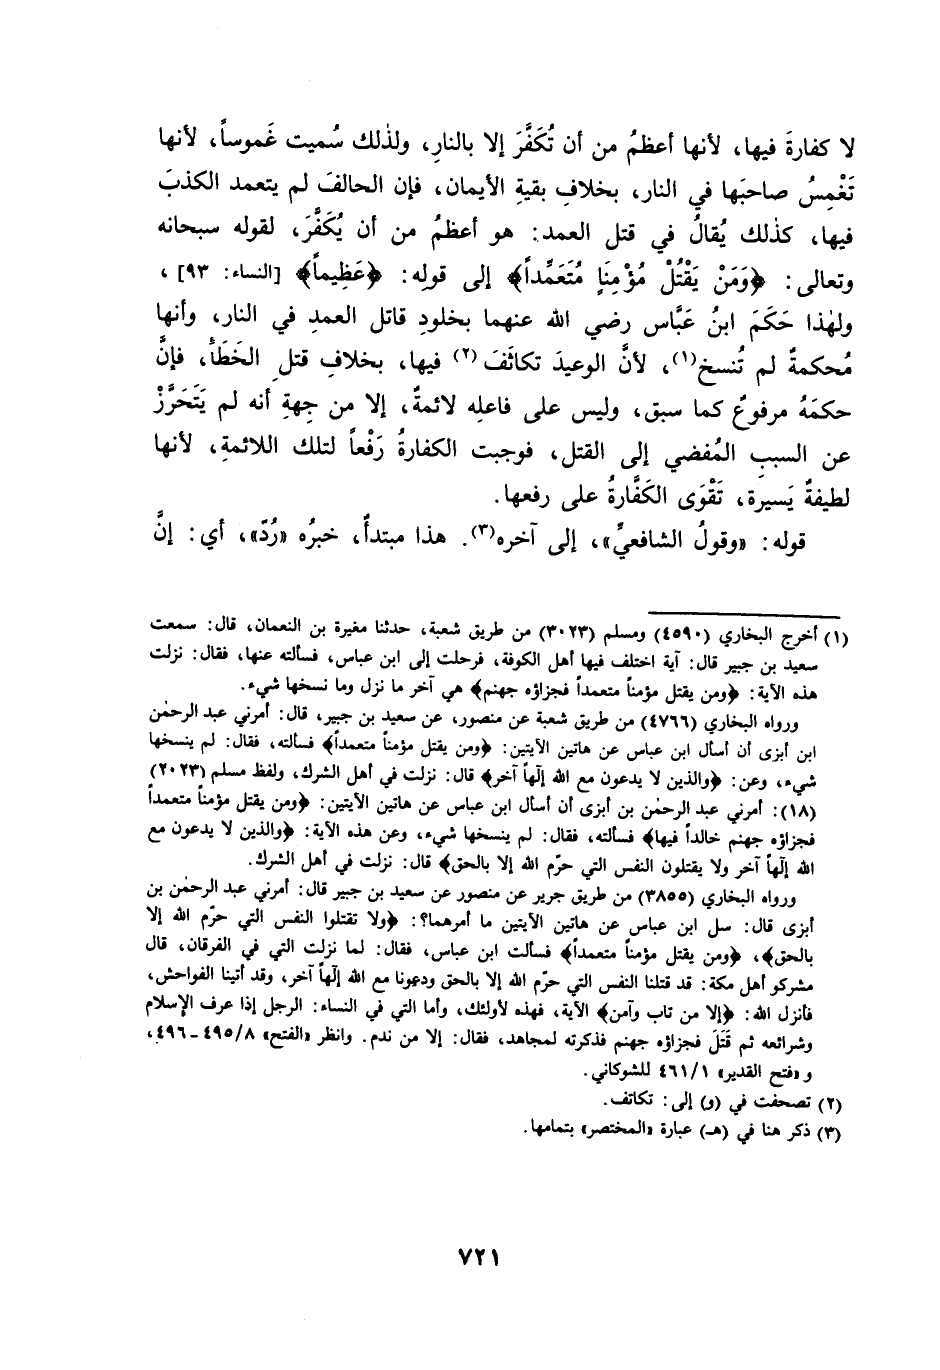 لا كفارةَ فيها، لأنها أعظمُ من أن تُكَفَّرَ إلا بالنارِ، ولذٰلك سُميت غَموساً، لأنها
تَغْمِسُ صاحبَها في النار، بخلافِ بقيةِ الأيمان، فإن الحالفَ لم يتعمد الكذبَ
فيها، كذٰلك يُقالُ في قتل العمد: هو أعظمُ من أن يُكَفَّرَ، لقوله سبحانه
وتعالى: ﴿وَمَنْ يَقْتُلْ مُؤْمِنَاٍ مُتَعَمِّداً﴾ إلى قولِه: ﴿عَظِيماً﴾ [النساء: ٩٣]،
ولهٰذا حَكَمَ ابنُ عَبَّاس رضي الله عنهما بخلودِ قاتل العمدِ في النار، وأنها
مُحكمةٌ لم تُنسخ(١)، لأنَّ الوعيدَ تكاثَفَ(٢) فيها، بخلافِ قتلِ الخَطَأ، فإنَّ
حكمَهُ مرفوعٌ كما سبق، وليس على فاعلِه لائمةٌ، إلا من جِهةِ أنه لم يَتَحَرَّزْ
عن السببِ المُفضي إلى القتل، فوجبت الكفارةُ رَفْعاً لتلك اللائمةِ، لأنها
لطيفةٌ يَسيرة، تَقْوَى الكَفَّارةُ على رفعها.
قوله: «وقولُ الشافعيِّ»، إلى آخره(٣). هذا مبتدأٌ، خبرُه «رُدّ»، أي: إنَّ
(١) أخرج البخاري (٤٥٩٠) ومسلم (٣٠٢٣) من طريق شعبة، حدثنا مغيرة بن النعمان، قال: سمعت
سعيد بن جبير قال: آية اختلف فيها أهل الكوفة، فرحلت إلى ابن عباس، فسألته عنها، فقال: نزلت
هذه الآية: ﴿ومن يقتل مؤمناً متعمداً فجزاؤه جهنم﴾ هي آخر ما نزل وما نسخها شيء.
ورواه البخاري (٤٧٦٦) من طريق شعبة عن منصور، عن سعيد بن جبير، قال: أمرني عبد الرحمٰن
ابن أبزى أن أسأل ابن عباس عن هاتين الآيتين: ﴿ومن يقتل مؤمناً متعمداً﴾ فسألته، فقال: لم ينسخها
شيء، وعن: ﴿والذين لا يدعون مع الله إلٰهاً آخر﴾ قال: نزلت في أهل الشرك، ولفظ مسلم (٢٠٢٣)
(١٨): أمرني عبد الرحمٰن بن أبزى أن أسأل ابن عباس عن هاتين الآيتين: ﴿ومن يقتل مؤمناً متعمداً
فجزاؤه جهنم خالداً فيها﴾ فسألته، فقال: لم ينسخها شيء، وعن هذه الآية: ﴿والذين لا يدعون مع
الله إلٰهاً آخر ولا يقتلون النفس التي حرّم الله إلا بالحق﴾ قال: نزلت في أهل الشرك.
ورواه البخاري (٣٨٥٥) من طريق جرير عن منصور عن سعيد بن جبير قال: أمرني عبد الرحمٰن بن
أبزى قال: سل ابن عباس عن هاتين الآيتين ما أمرهما؟: ﴿ولا تقتلوا النفس التي حرّم الله إلا
بالحق﴾، ﴿ومن يقتل مؤمناً متعمداً﴾ فسألت ابن عباس، فقال: لما نزلت التي في الفرقان، قال
مشركو أهل مكة: قد قتلنا النفس التي حرّم الله إلا بالحق ودعونا مع الله إلٰهاً آخر، وقد أتينا الفواحش،
فأنزل الله: ﴿إلا من تاب وآمن﴾ الآية، فهذه لأولئك، وأما التي في النساء: الرجل إذا عرف الإسلام
وشرائعه ثم قَتَلَ فجزاؤه جهنم فذكرته لمجاهد، فقال: إلا من ندم. وانظر «الفتح» ٤٩٥/٨-٤٩٦،
و«فتح القدير» ٤٦١/١ للشوكاني.
(٢) تصحفت في (و) إلى: تكاتف.
(٣) ذكر هنا في (هـ) عبارة «المختصر» بتمامها.
٧٢١